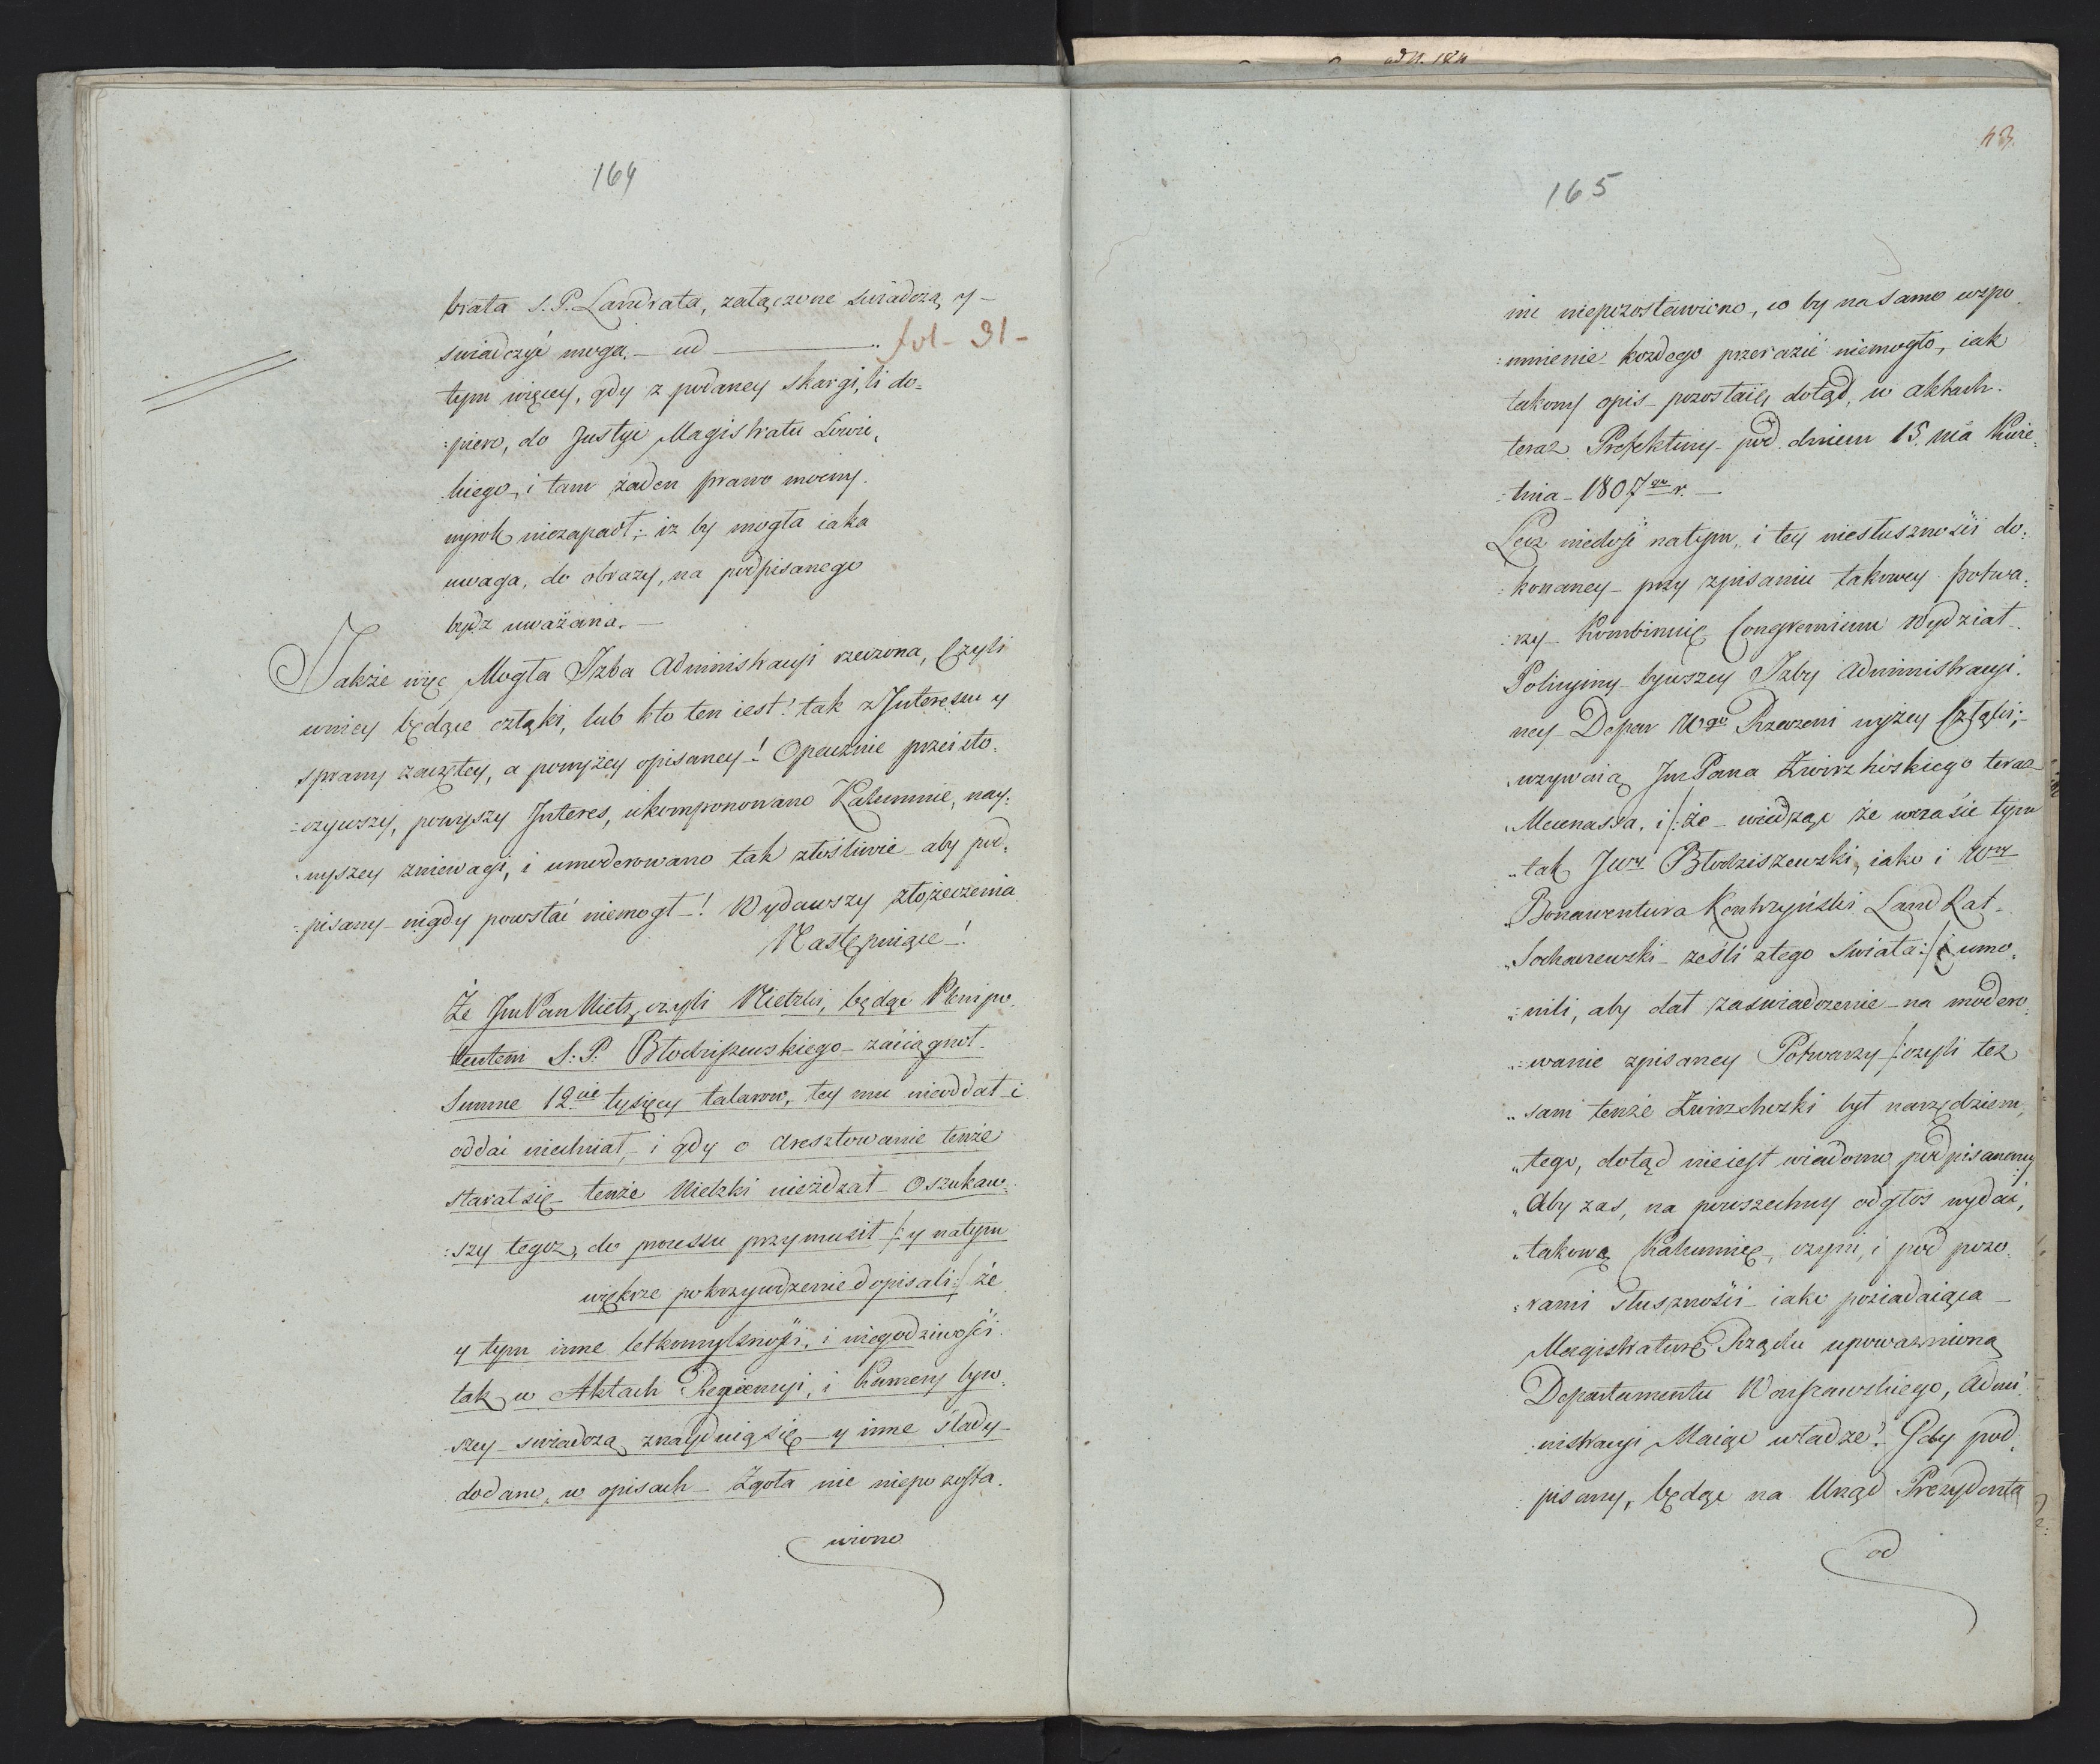 164
brata S. P. Landrata, załączone swiadczą y –
swiadczyć mogą. – ud ——— fol – 31 –
tym więcey, gdy z podaney skargi, li do=
=piero, do Justyi Magistratu Łowi=
kiego, i tam żaden prawo mocny
wyrok niezapadł; iz by mogła iaka
uwaga, do obrazy, na podpisanego
bydz uważana. –
Jakże więc Mogła Izba Administracyi rzeczona, Czyli
w niey będące człąki, lub kto ten iest! tak z Interessu y
sprawy zaczętey, a powyżey opisaney! Opacznie przeisto=
=czywszy, powyszy Interes, ukomponowano Kalumnie, nay=
wyszey zniewagi, i umoderowano tak złośliwie – aby pod=
=pisany – nigdy powstać niemogł –! Wydawszy złożeczenia
Następuiące –!
Że JmPan Nietz, czyli Nietzki, będąc Plenipo=
tentem S: P: Błodziszewskiego – zaiciągnoł –
Summe 12.cie tysięcy talarow, tey mu nieoddał i
oddać niechciał, – i gdy o Aresztowanie tenże
starał się – tenże Nietzki nieżdzał – oszukaw=
=szy tegoz, do processu przymusił /: y natym
większe pokrzywdzenie dopisali :/ że
y tym inne letkomyslności, i niegodziwości
tak w Aktach Regiencyi, i Kamery byw=
szey swiadczą, znayduią się – y inne slady –
dodano, w opisach – Zgoła nic niepozosta=
wiono
43.
165
nic niepozostawiono, co by na samo wspo=
=mnienie – kozdego przerazić niemogło, – iak
takowy opis – pozostaie, dotąd, w aktach
teraz Prefektury – pod dniem 15. m̄a Kwie=
=tnia – 1807go r. –
Lecz niedość natym, i tey niesłuszności do=
=konaney – przy zpisaniu takowey potwa=
=rzy – Kombinuię Congremium Wydział –
Policyiny – bywszey Izby Administracyi=
ney – Depar Wgo Rzeczeni wyżey Człąki; –
„wzywaią JmPana Zwirzhoskiego teraz
„Mecenassa, i /: że – wiedząc że wczasie tym
„tak Jwr Błodziszewski, iako i Wny
„Bonawentura Kontrzyński Land Rat –
„Sochaczewski – ześli ztego Swiata :/ i umo=
„=nili, aby dał zaswiadczenie – na modero=
„=wanie zpisaney Potwarzy – /: czyli tez
„sam tenże Zwirzchozki był narzędziem,
„tego, dotąd nieiest wiadomo podpisanemu
„Aby zas, na powszechny odgłos wydać,
„takową Kalumnię, czyni, i pod pozo=
=rami słuszności – iako posiadaiąca –
Magistraturę Rządu upoważnioną
Departamentu Warszawskiego, Admi=
=nistracyi Maiąc władze! – Gdy pod=
=pisany, będąc na Urząd Prezydenta
od